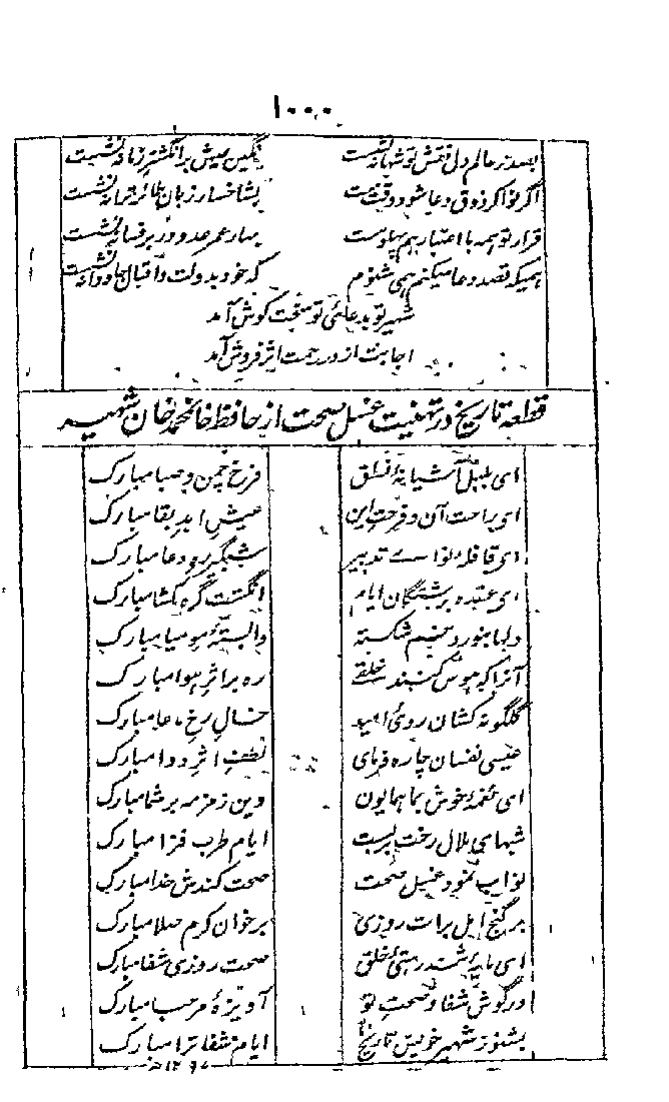 ۱۰۰۰
بصدر عالم دل نقش تو شهانه نشست نگین عیش بر انگشتر زمانه نشست
اگر نوا گر ذوق دعا شود وقتست بشاخسار زبان طائر ترانه نشست
قرار تو همه با اعتبار هم پهلوست بهار عمر عدو در پر فسانه نشست
همیکه قصد دعا میکنم همی شنوم که خود بدولت و اقبال جاودانه نشست
شهیر نوید علی تو سخت گوش آمد
اجابت از در رحمت اثر فروش آمد
قطعه تاریخ در تهنیت غسل صحت از حافظ خانمحمد خان شهیر
ای بلبل آشیانهٔ خلق فرخ چمن و صبا مبارک
ای راحت آن و فرحت این عیش ابد بقا مبارک
ای قافله نوای تدبیر شبگیر رو دعا مبارک
ای عقده برشتگان ایام انگشت گره کشا مبارک
دلها بنورد غم شکسته وابستهٔ مومیا مبارک
آنرا که هوس کنند خلقی ره بر اثر هوا مبارک
گلگونه کشان روی امید خال رخ مدعا مبارک
عیسی نفسان چاره فرمای نقش اثر دوا مبارک
ای نغمهٔ خوش بما همایون وین زمزمه بر شما مبارک
شبهای ملال رخت بربست ایام طرب فزا مبارک
نواب نمود غسل صحت صحت کندش خدا مبارک
بر گنج امل برات روزی بر خوان کرم صلا مبارک
ای مایه شمر هستی خلق صحت روزی شفا مبارک
در گوش شفا و صحت تو آویزهٔ مرحبا مبارک
بشنو ز شهیر خویش تاریخ ایام شفا ترا مبارک
۱۲۹۶ھ